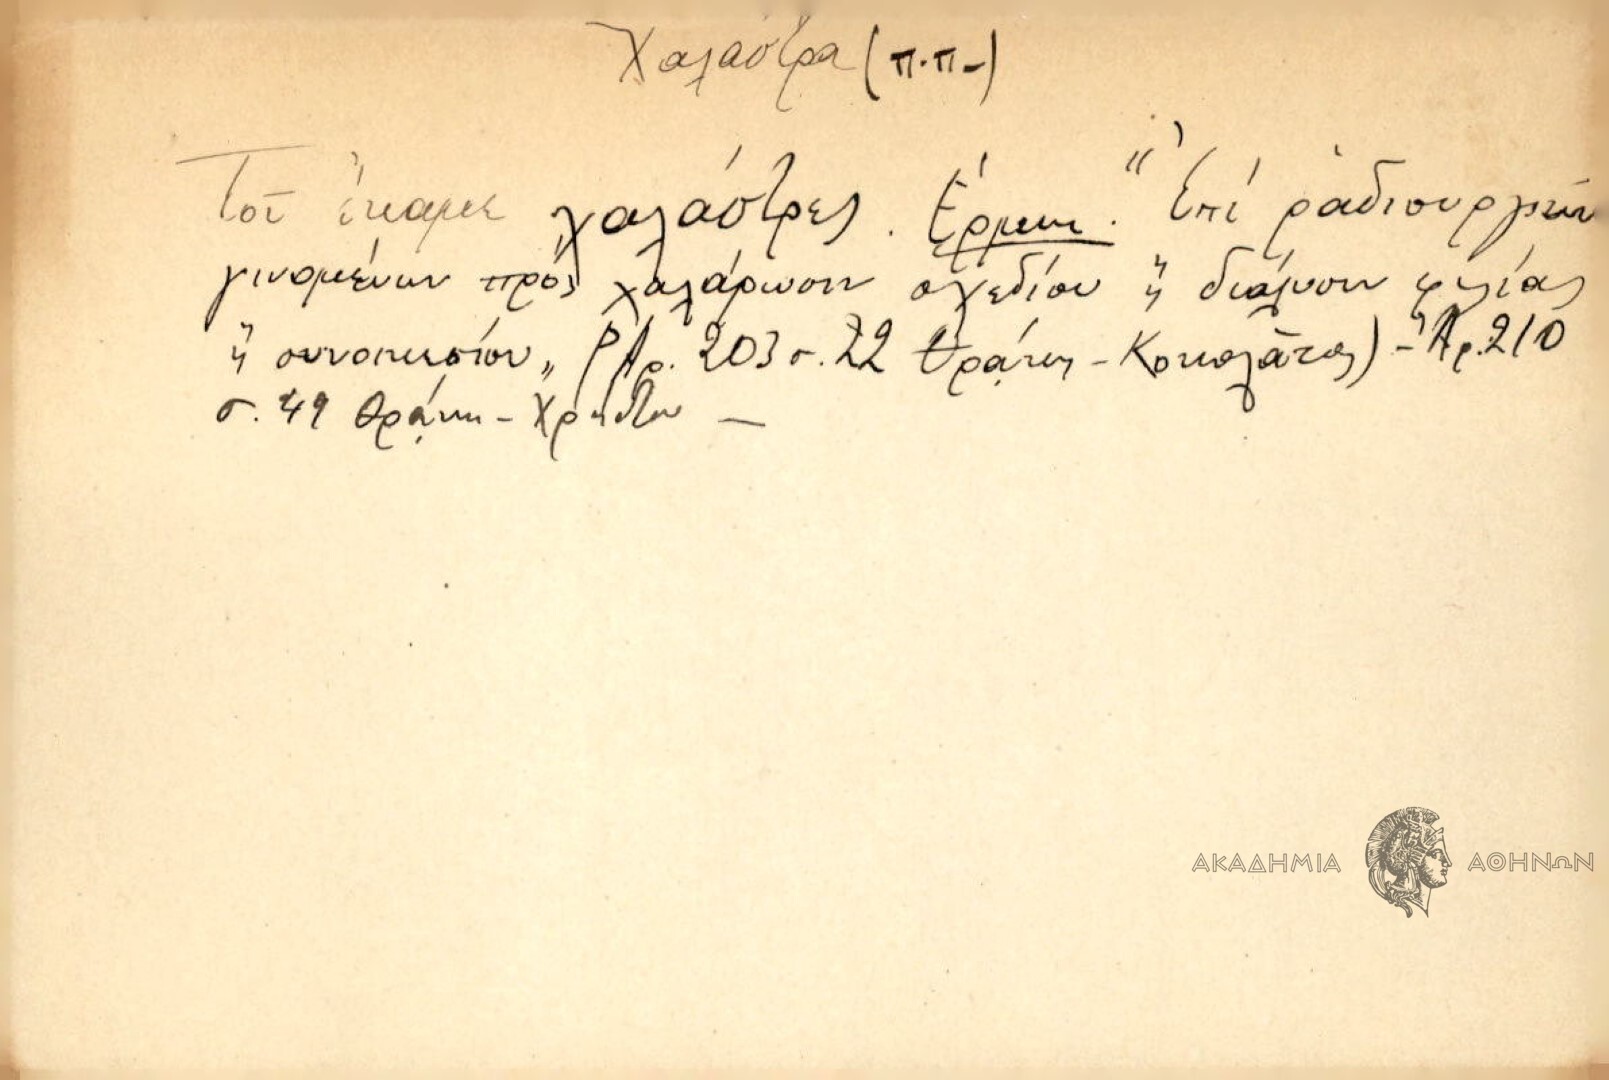 Χαλάστρα (π.π-)
Τοῦ ἔκαμε χαλάστρες. Ἑρμην. "Ἐπί ῥαδιουργιῶν
γινομένων πρός χαλάρωσιν σχεδίου ἤ διάλυσιν φιλίας
ἤ συνοικεσίου„ (Ἀρ. 203 σ. 22 Θρᾴκης -) - Ἀρ. 210
σ. 49 Θρᾴκη - Χρήστου -
ΑΚΑΔΗΜΙΑ ΑΘΗΝΩΝ